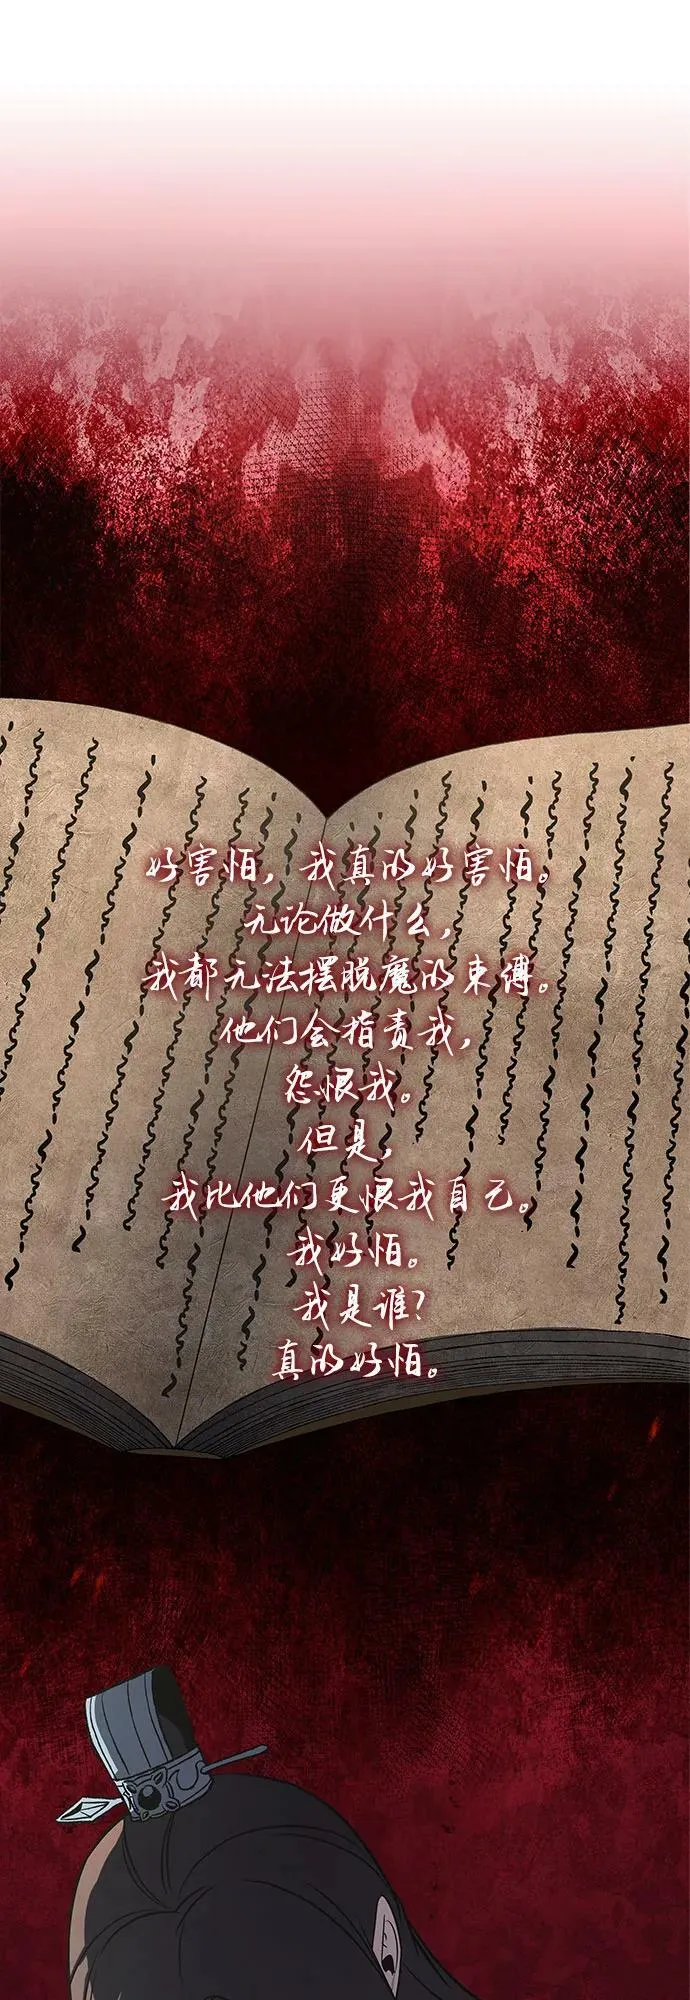 好害怕，我真的好害怕。
无论做什么，
我都无法摆脱魔的束缚。
他们会指责我，
怨恨我。
但是，
我比他们更恨我自己。
我好怕。
我是谁？
真的好怕。